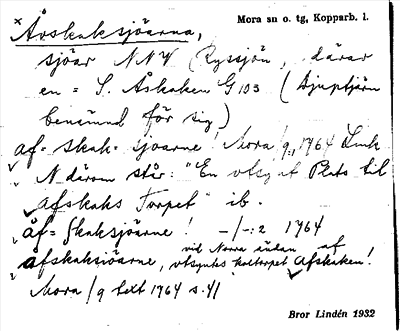 × Åvskaksjöarna, Mora sn o. tg, Kopparb. l.
sjöar NNV Ryssjön, därav
en = S. Åskaken G 103 (Djuptjärn
benämnd för sig)
åf= skak= sjoarne! Mora/9:1, 1764 Link
N därom står: "En utsynt Plats til
Afskaks Torpet" ib.
åf= skaksjöarne! -/-:2 1764
åfskaksiöarne, vid Norra ändan af
utsyntes koltorpet Afskaken!
Mora/9 text 1764 s. 41
Bror Lindén 1932